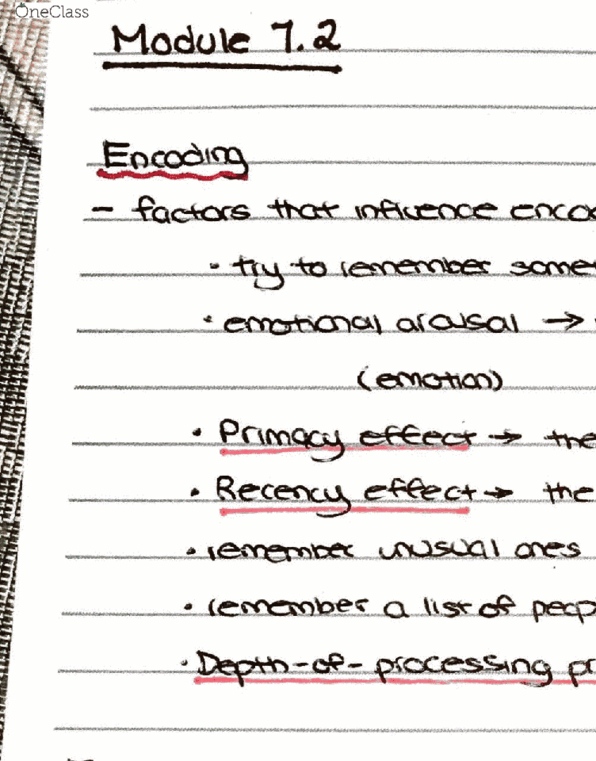 OneClass
Module 7.2
Encoding
- factors that influence enco
· try to remember some
· emotional arousal →
(emotion)
· Primacy effect → the
· Recency effect → the
· remember unusual ones
· remember a list of peop
· Depth-of-processing pr